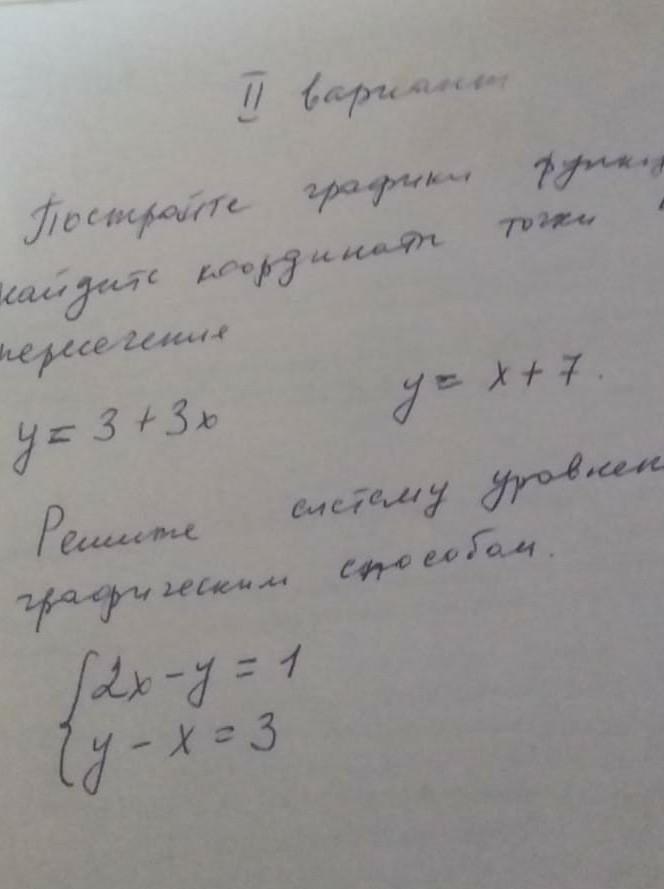 II вариант
Постройте графики функц
найдите координаты точки
пересечения
y = 3 + 3x y = x + 7.
Решите систему уровнен
графическим способом.
{2x - y = 1
y - x = 3